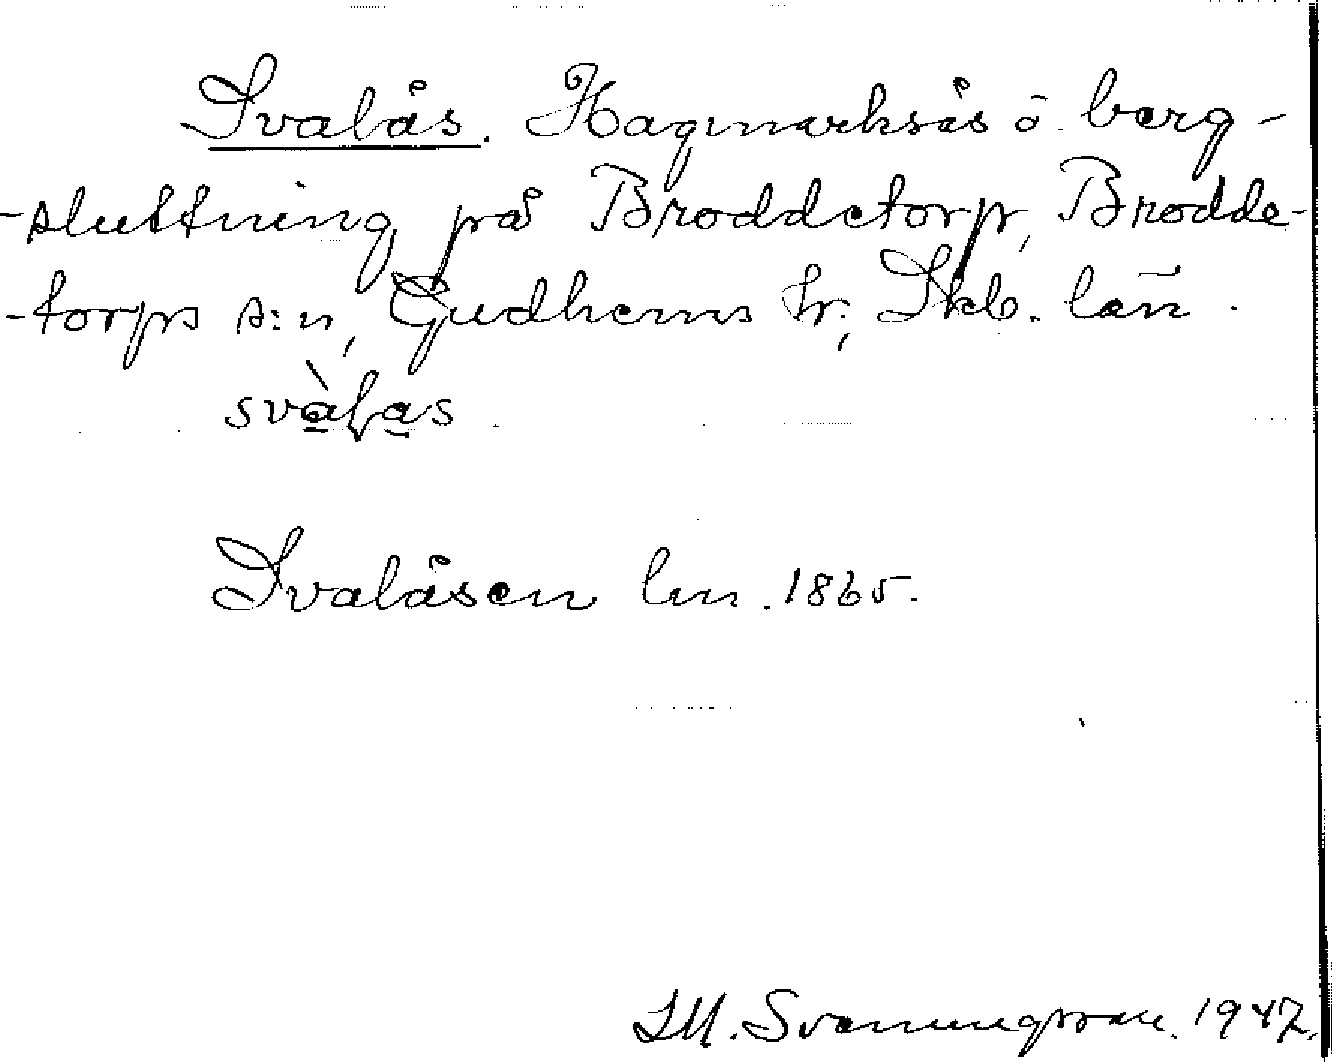 Svalås. Hagmarksås o. berg-
-sluttning på Broddetorp, Brodde-
-torps s:n, Gudhems hr., Skb. län.
svàlas
Svalåsen lm. 1865.
I.M. Svenungsson. 1947.